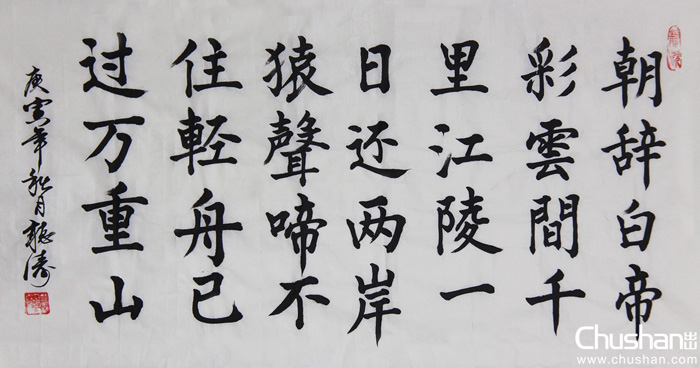 朝辞白帝
彩雲間千
里江陵一
日还两岸
猿聲啼不
住軽舟已
过万重山
庚寅年秋月
Chushan出山
www.chushan.com